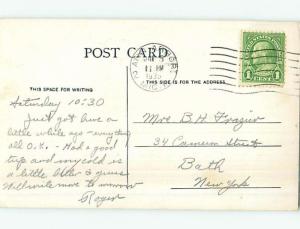 POST CARD
THIS SPACE FOR WRITING
THIS SIDE IS FOR THE ADDRESS
11 PM
1935
1 CENT 1
Saturday 10:30
Just got here a
little while ago - everything
all O.K. - Had a good
trip and my cold is
a little better I guess
Will write more to morrow
Roger
Mrs B. H. Frazier
34 Cameron Street
Bath
New York